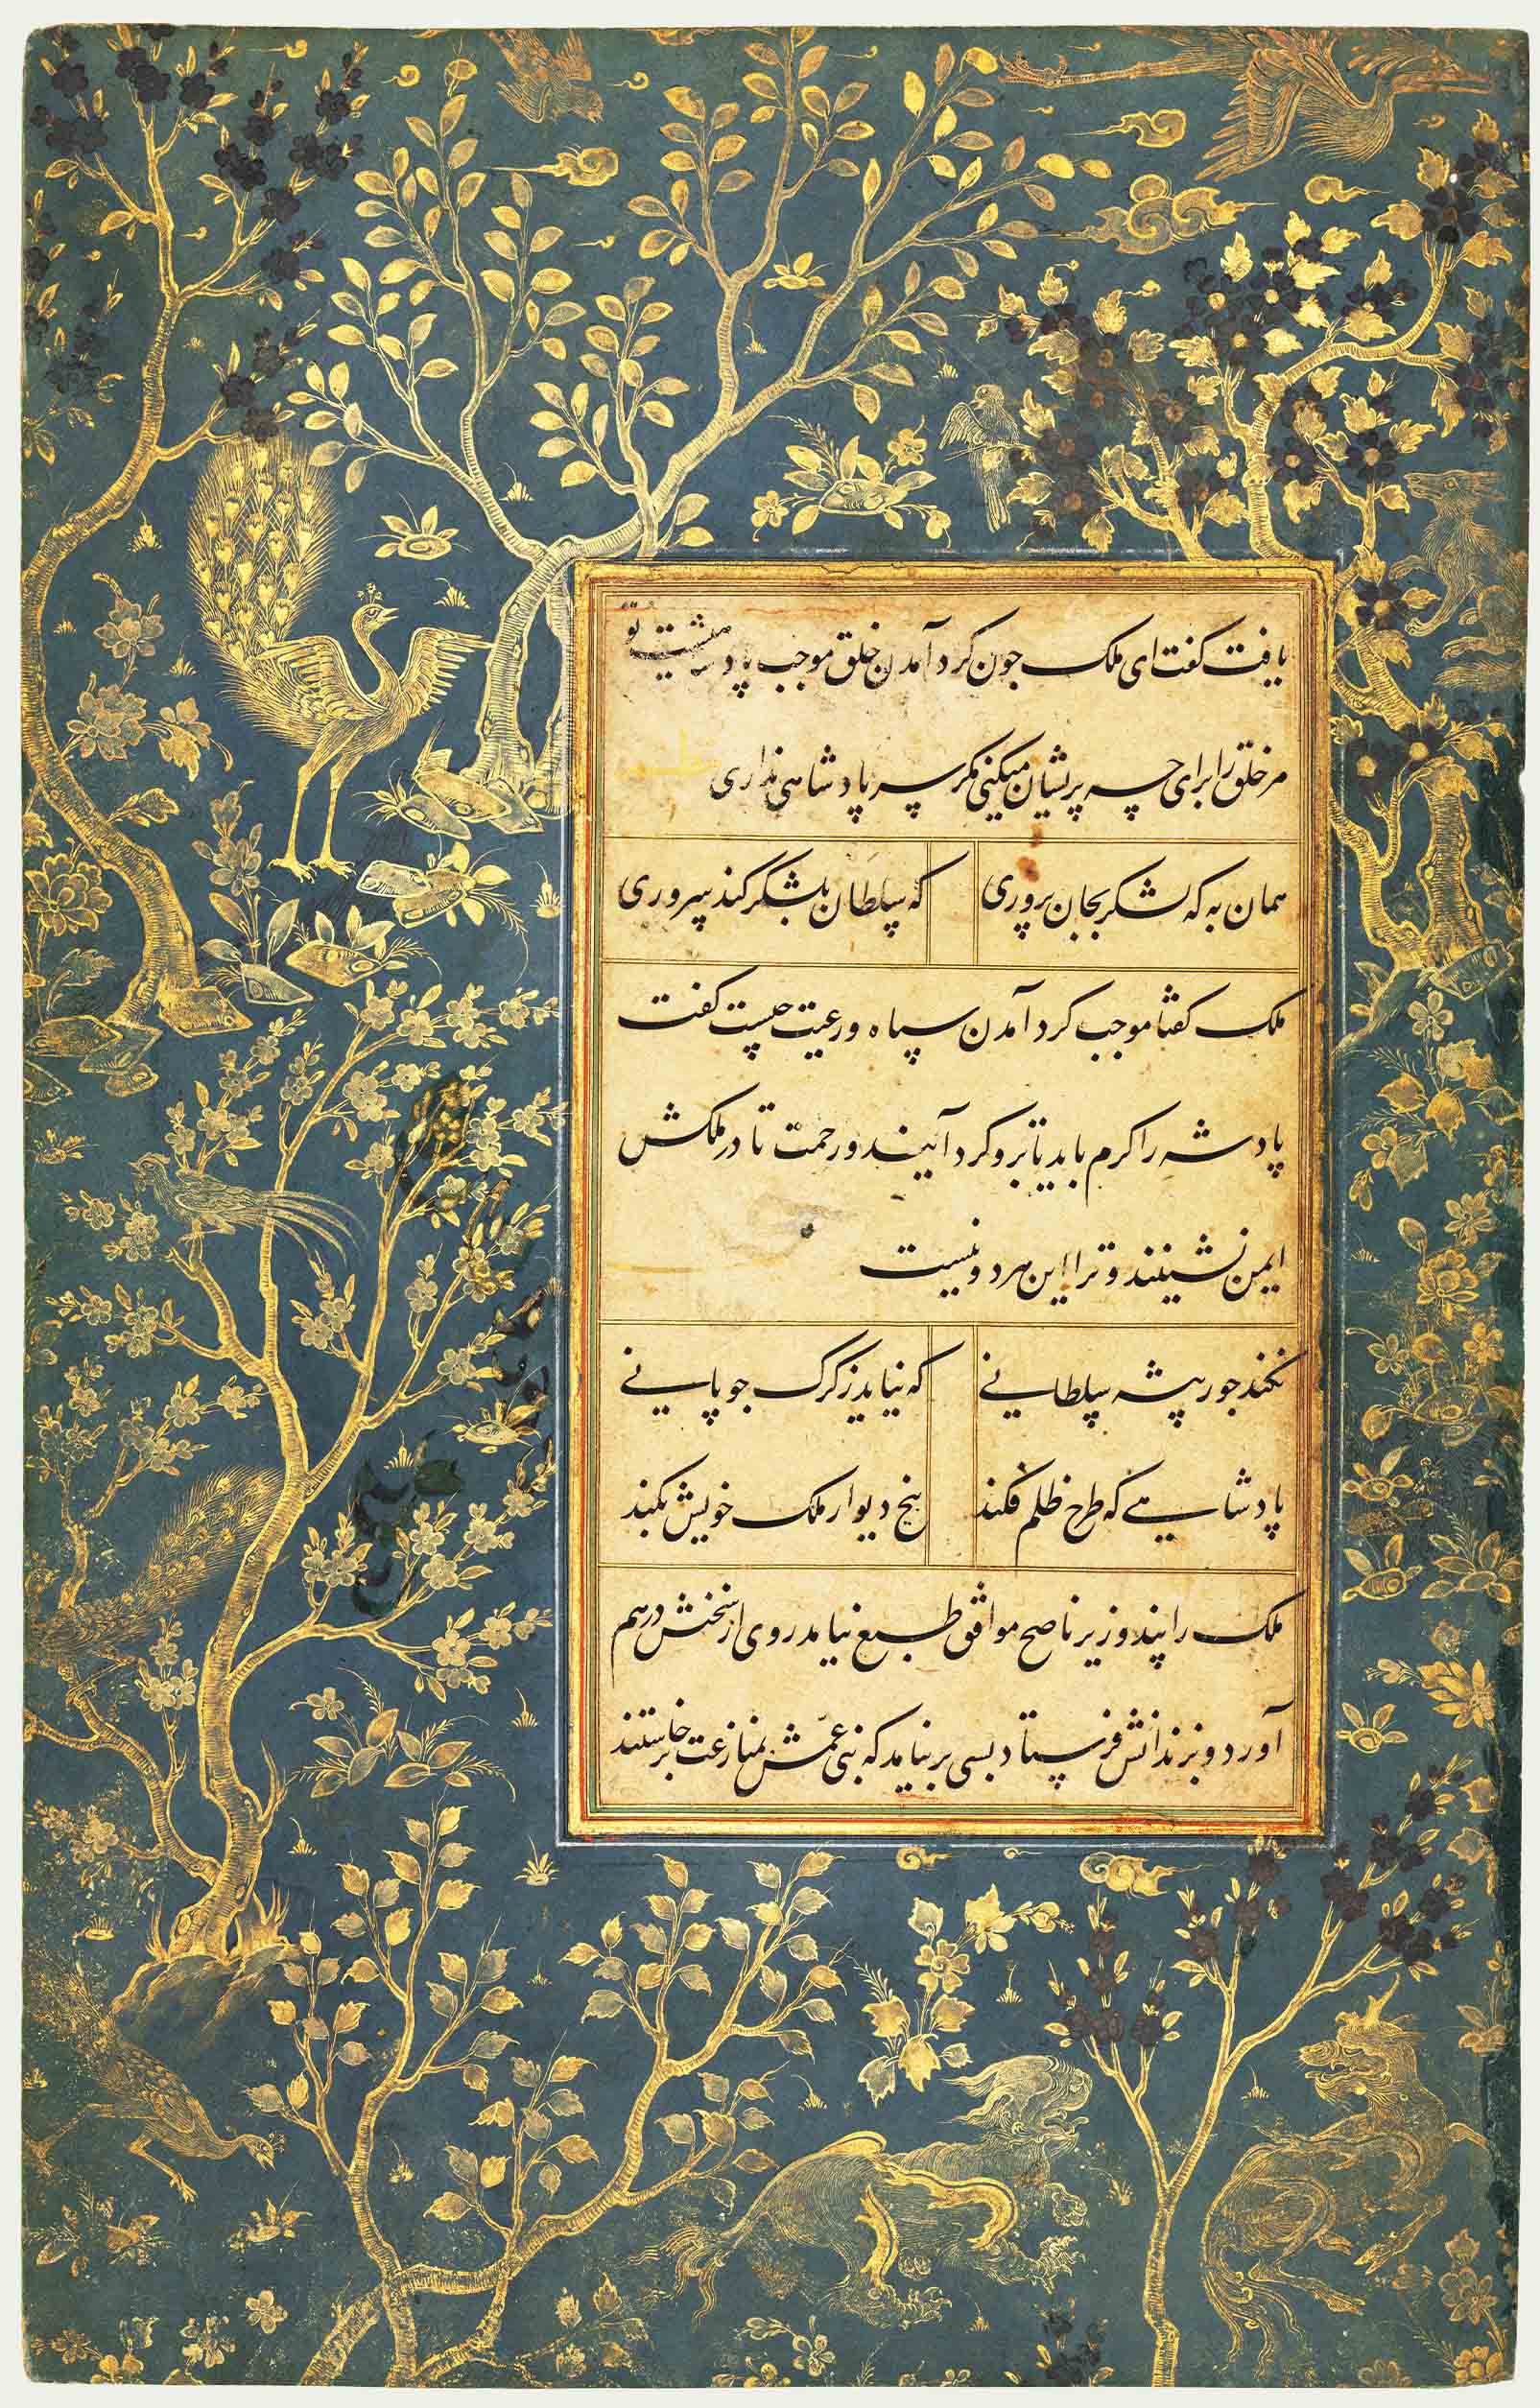 یافت گفت ای ملک جون کرد آمدن خلق موجب پادشیشت تو
مر خلق را برای چه پریشان میکنی مکر سر پادشاهی نداری
همان به که لشکر بجان پروری
که سلطان بلشکر کند سروری
ملک گفتا موجب کرد آمدن سپاه و رعیت چیست گفت
پادشه را کرم باید تا برو کرد آیند و رحمت تا در ملکش
ایمن نشینند و ترا این هر دو نیست
نکند جور پیشه سلطانی
که نیاید ز کرک جوپانی
پادشاهی که طرح ظلم فکند
بیخ دیوار ملک خویش بکند
ملک را پند وزیر ناصح موافق طبع نیامد روی از سخنش درهم
آورد و بزندانش فرستاد بسی بر نیامد که بنی عمش بمنازعت برخاستند